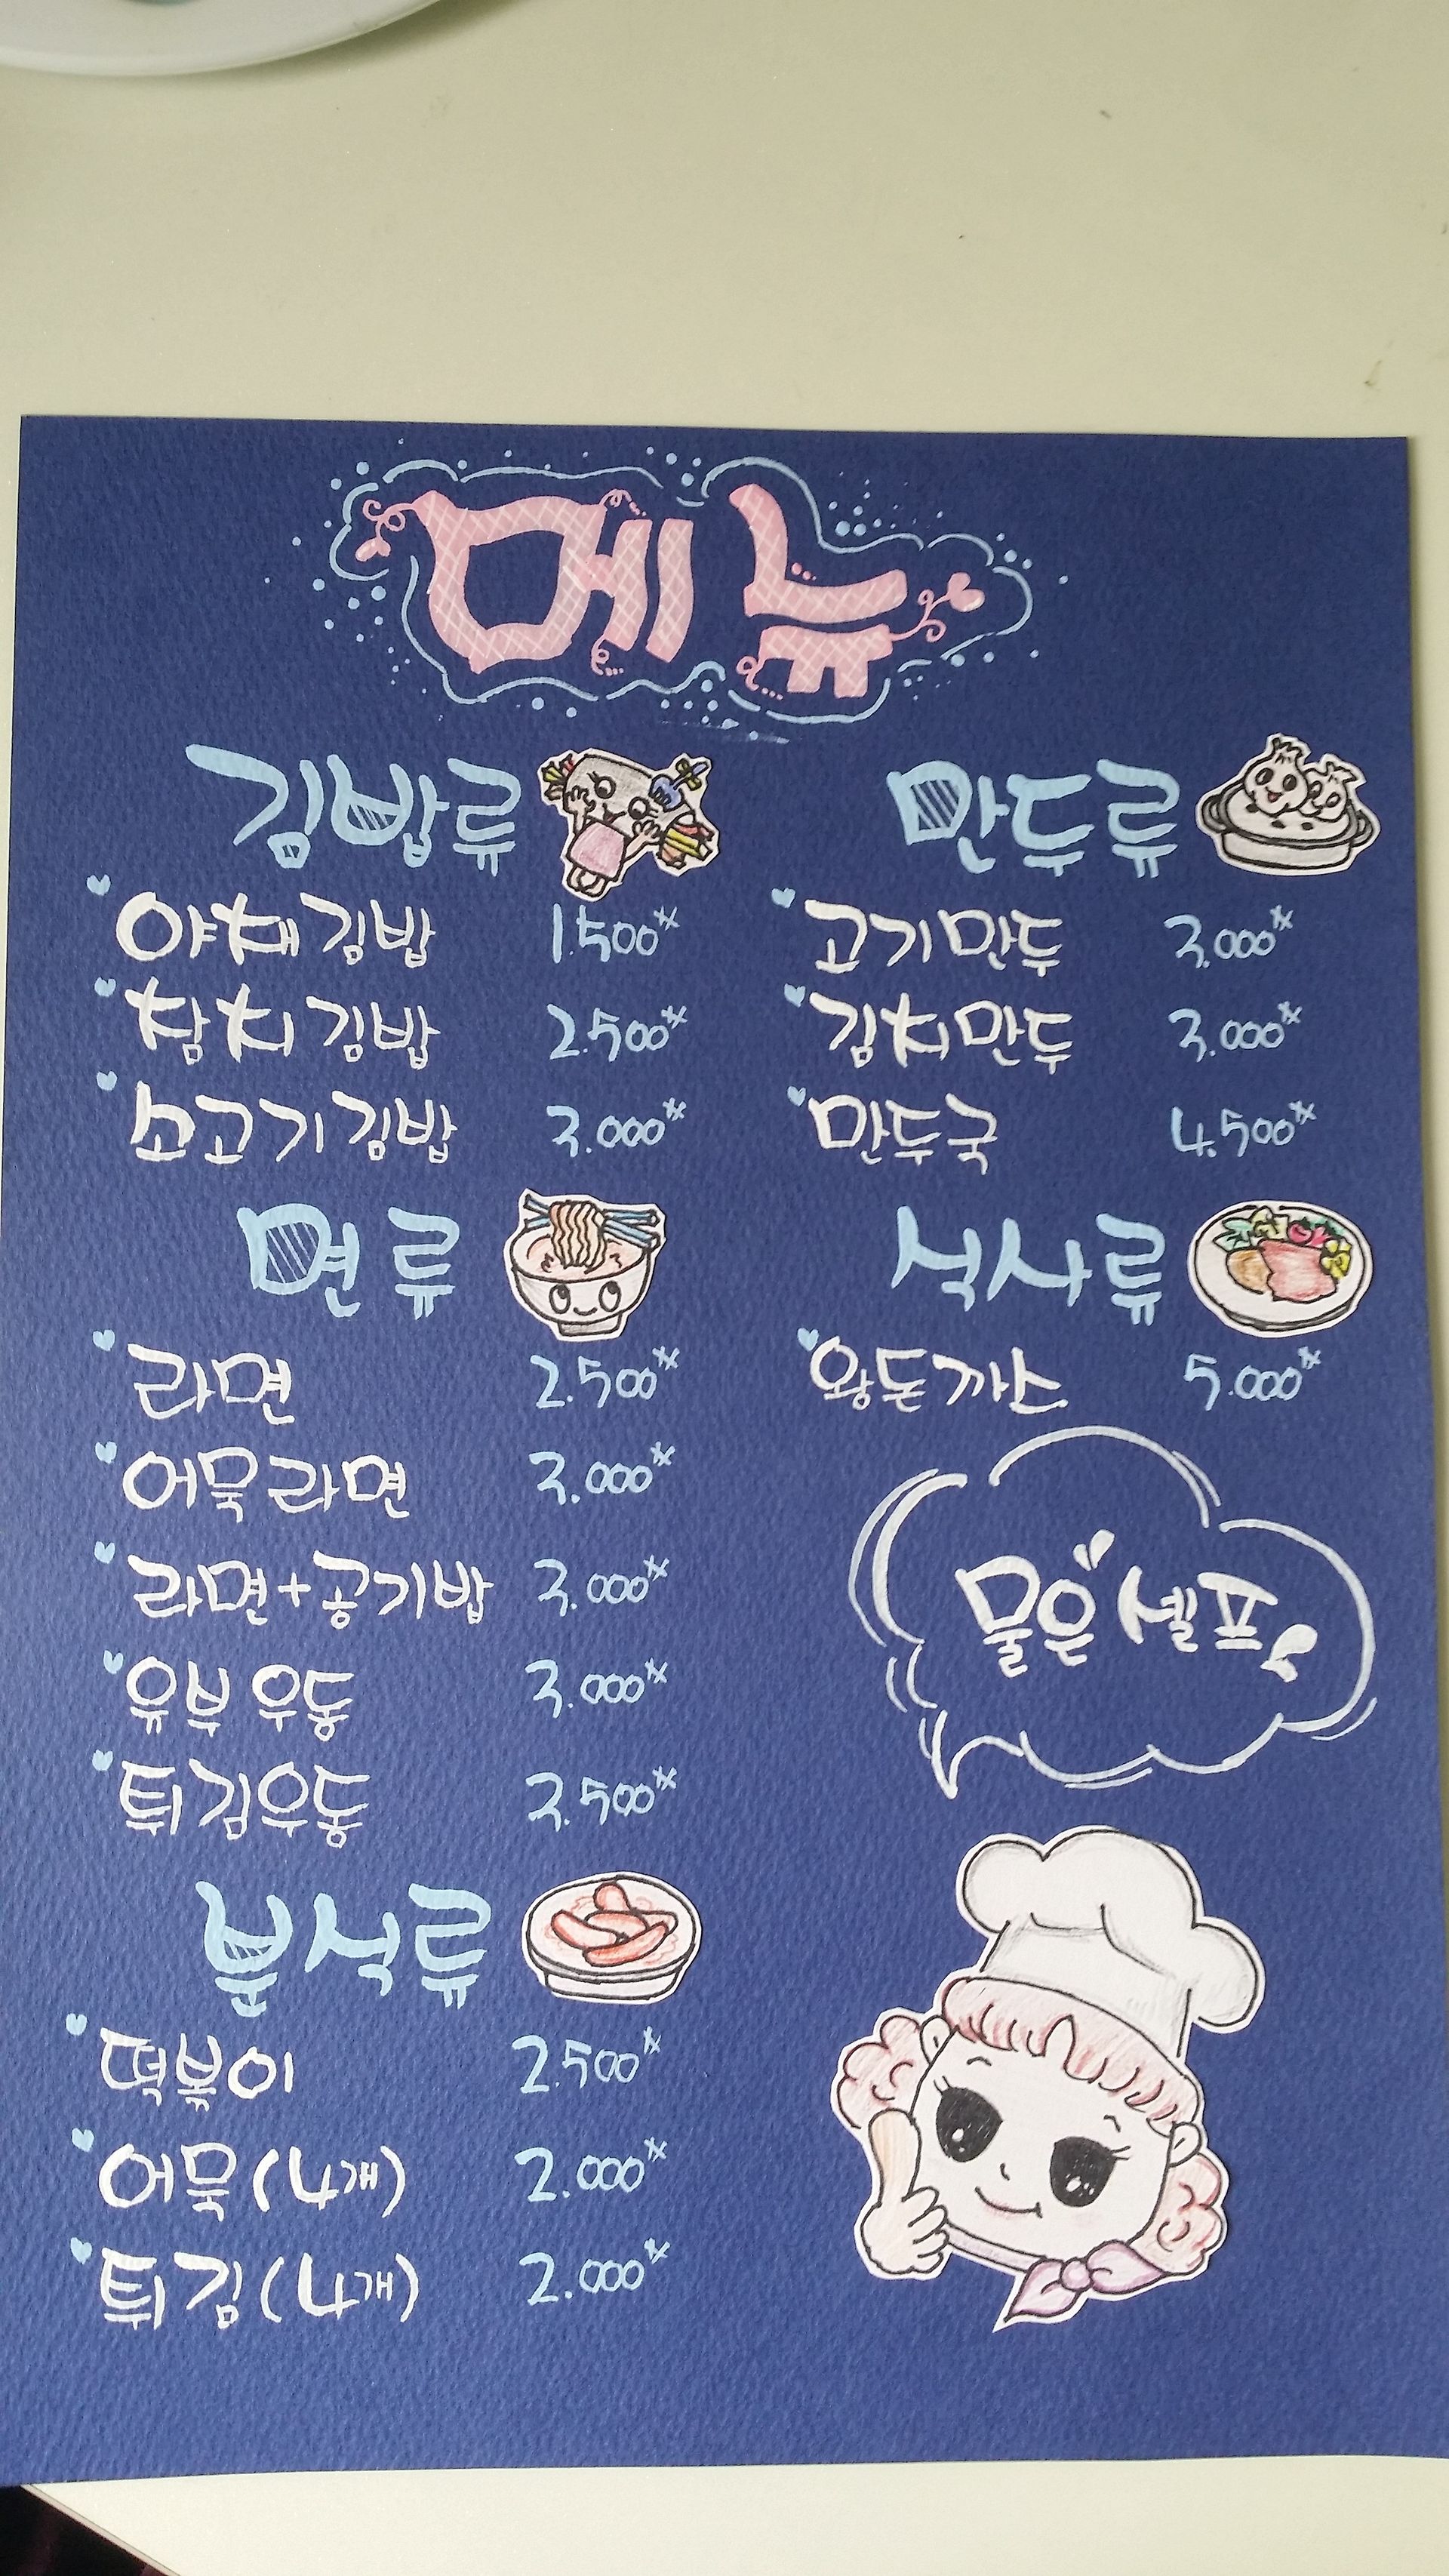 메뉴
김밥류
야채김밥 1.500
참치김밥 2.500
소고기김밥 3.000
면류
라면 2.500
어묵라면 3.000
라면+공기밥 3.000
유부우동 3.000
튀김우동 3.500
분식류
떡볶이 2.500
어묵(4개) 2.000
튀김(4개) 2.000
만두류
고기만두 3.000
김치만두 3.000
만두국 4.500
식사류
왕돈까스 5.000
물은 셀프